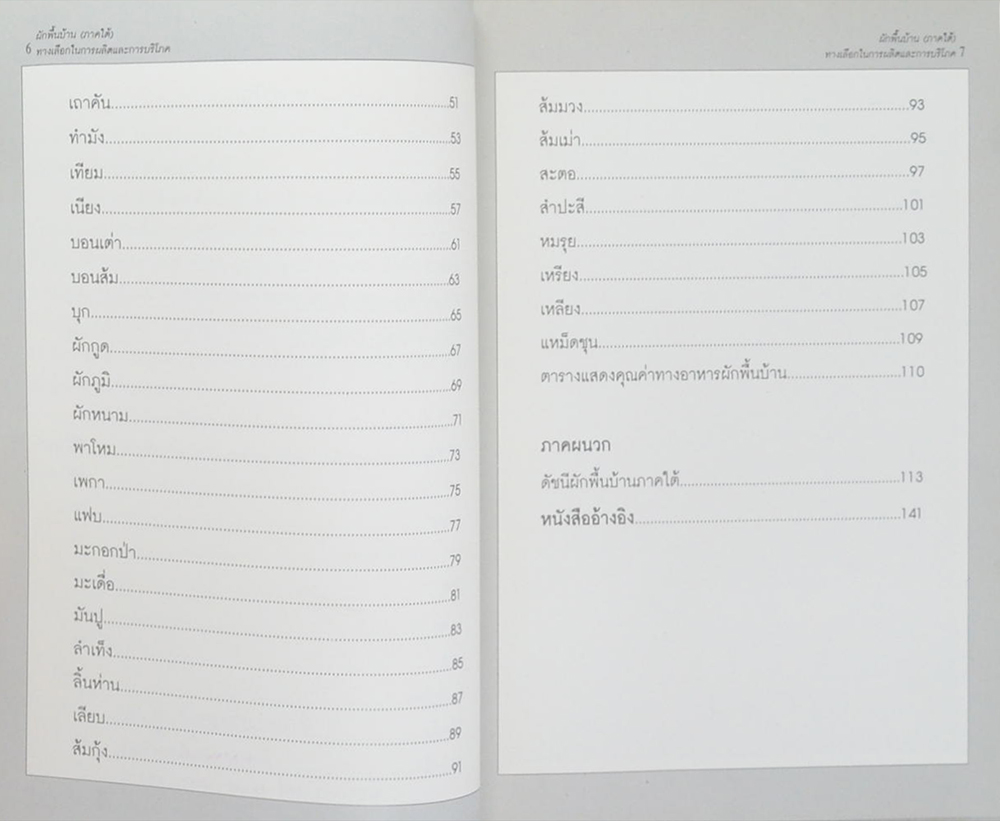 ผักพื้นบ้าน (ภาคใต้)
6 ทางเลือกในการผลิตและการบริโภค
เถาคัน..........51
ทำมัง..........53
เทียม..........55
เนียง..........57
บอนเต่า..........61
บอนส้ม..........63
บุก..........65
ผักกูด..........67
ผักภูมิ..........69
ผักหนาม..........71
พาโหม..........73
เพกา..........75
แฟบ..........77
มะกอกป่า..........79
มะเดื่อ..........81
มันปู..........83
ลำเท็ง..........85
ลิ้นห่าน..........87
เลียบ..........89
ส้มกุ้ง..........91
ผักพื้นบ้าน (ภาคใต้)
ทางเลือกในการผลิตและการบริโภค 7
ส้มมวง..........93
ส้มเม่า..........95
สะตอ..........97
สำปะสี..........101
หมรุย..........103
เหรียง..........105
เหลียง..........107
แหม็ดชุน..........109
ตารางแสดงคุณค่าทางอาหารผักพื้นบ้าน..........110
ภาคผนวก
ดัชนีผักพื้นบ้านภาคใต้..........113
หนังสืออ้างอิง..........141